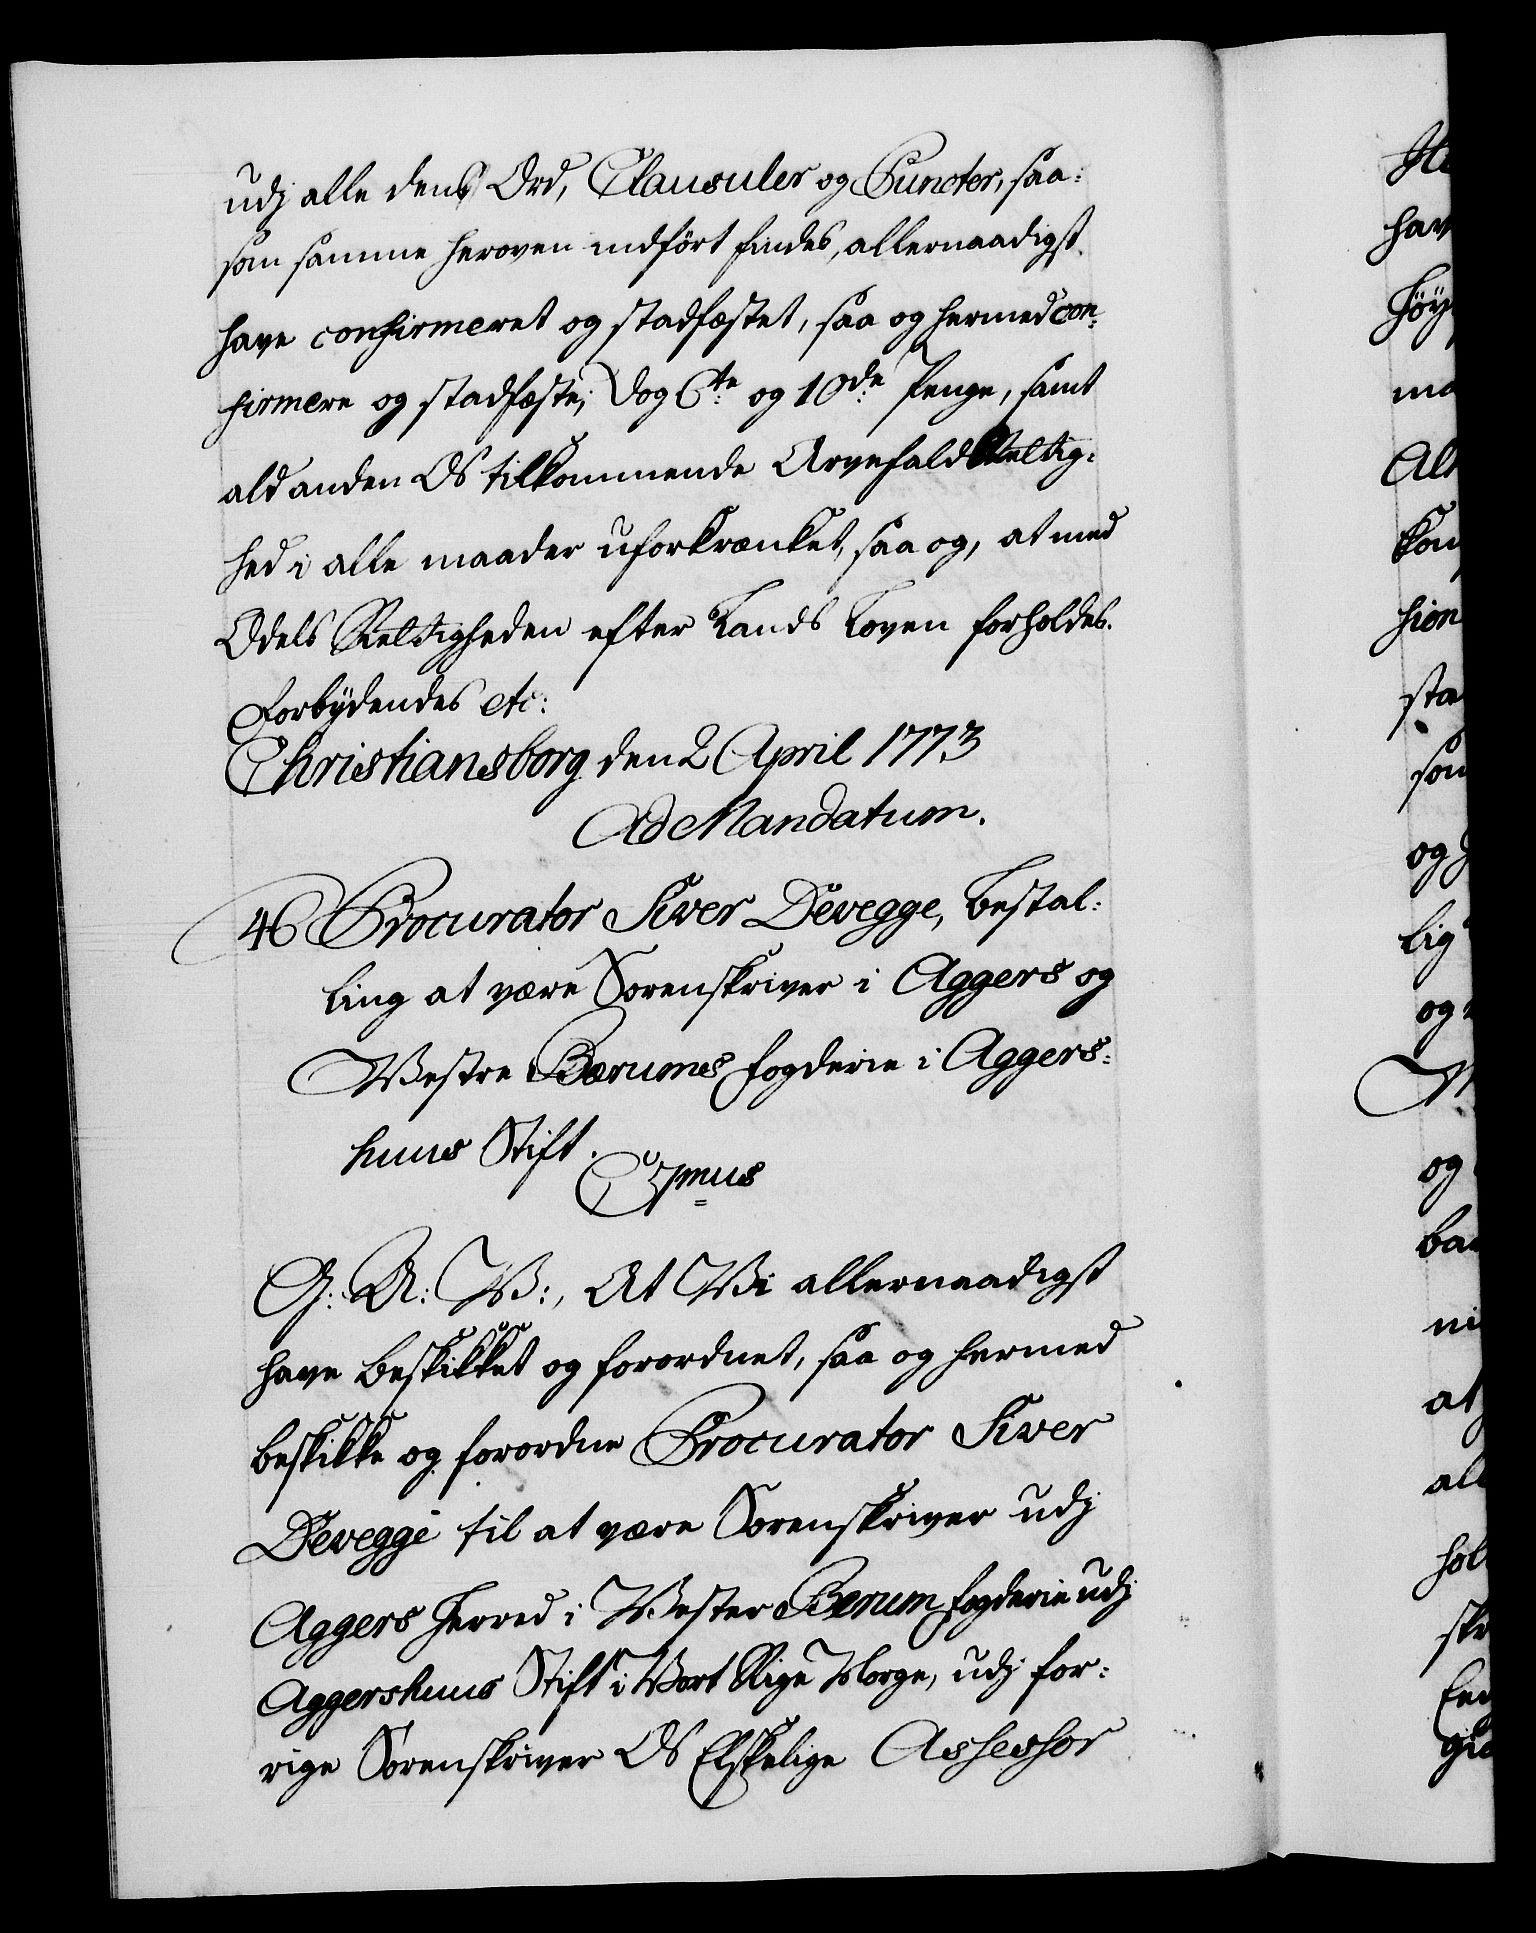 udj alle dens Ord, Clausuler og Puncter, saa-
som samme heroven indført findes, allernaadigst
have confirmeret og stadfæstet, saa og hermed con-
firmere og stadfæste; Dog 6te og 10de Penge, samt
ald anden Os tilkommende Arvefald Rettig-
hed i alle maader uforkrænket, saa og, at med
Odels Rettigheden efter Lands Loven forholdes.
Forbydendes etc:
Christiansborg den 2 April 1773
Ad Mandatum.
46 Procurator Siver Devegge, Bestal-
ling at være Sorenskriver i Aggers og
Westre Bærums Fogderie i Aggers-
huus Stift.
C 7mus
G: A: W:, At Wi allernaadigst
have beskikket og forordnet, saa og hermed
beskikke og forordne Procurator Siver
Devegge til at være Sorenskriver udj
Aggers Herred i Wester Berum Fogderie udj
Aggershuus Stift i Vort Rige Norge, udj for-
rige Sorenskriver Os Elskelige Assessor